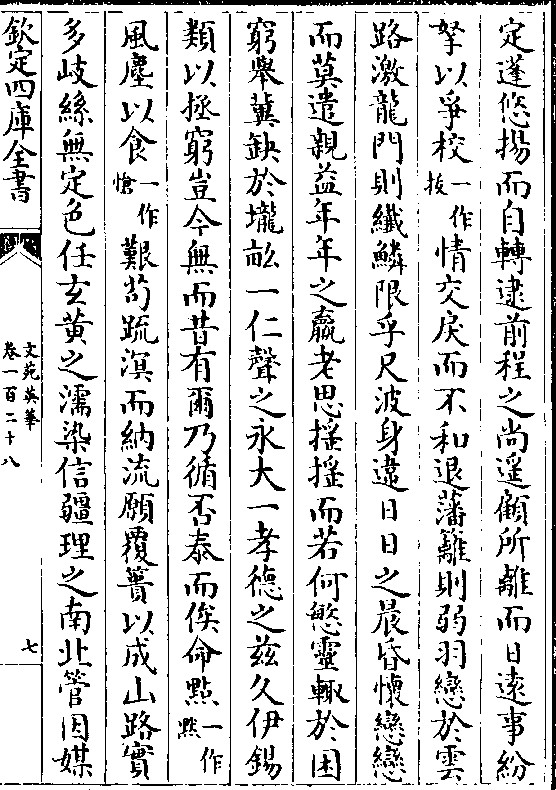 定蓬悠揚而自轉逮前程之尚遥顧所離而日逺事紛
拏以爭校一作挍情交戾而不和退藩籬則弱羽戀於雲
路激龍門則纎鱗限乎尺波身違日日之晨昏懷戀戀
而莫遣親益年年之羸老思揺揺而若何慜靈輙於困
窮舉冀缺於壠畝一仁聲之永大一孝德之兹久伊錫
類以拯窮豈今無而昔有爾乃循否泰而俟命㸃一作黙
風塵以食一作愴艱苟䟽溟而納流願覆簣以成山路實
多岐絲無定色任玄黄之濡染信疆理之南北管因媒
欽定四庫全書
文苑英華
卷一百二十八
七